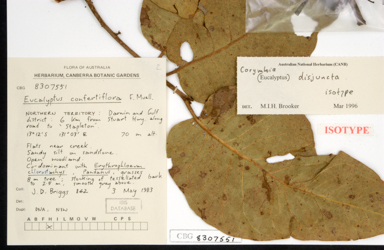 FLORA OF AUSTRALIA
HERBARIUM, CANBERRA BOTANIC GARDENS
CBG 8307551
Eucalyptus confertiflora F. Muell.
NORTHERN TERRITORY : Darwin and Gulf
district : 6 km from Stuart Hwy along
road to Stapleton
13°12'S 131°03'E 70 m alt.
Flats near creek
Sandy silt on sandstone
Open woodland
Co-dominant with Erythrophloeum
chlorostachys, Pandanus, grasses
8 m tree; stocking of tessellated bark
to 2 m, smooth grey above.
Coll. J.D. Briggs 862 3 May 1983
Det.
Dist.
DATABASE
A B F H I L M O U W C P S
Australian National Herbarium (CANB)
Corymbia
(Eucalyptus) disjuncta
isotype
DET. M.I.H. Brooker Mar 1996
ISOTYPE
CBG 8307551